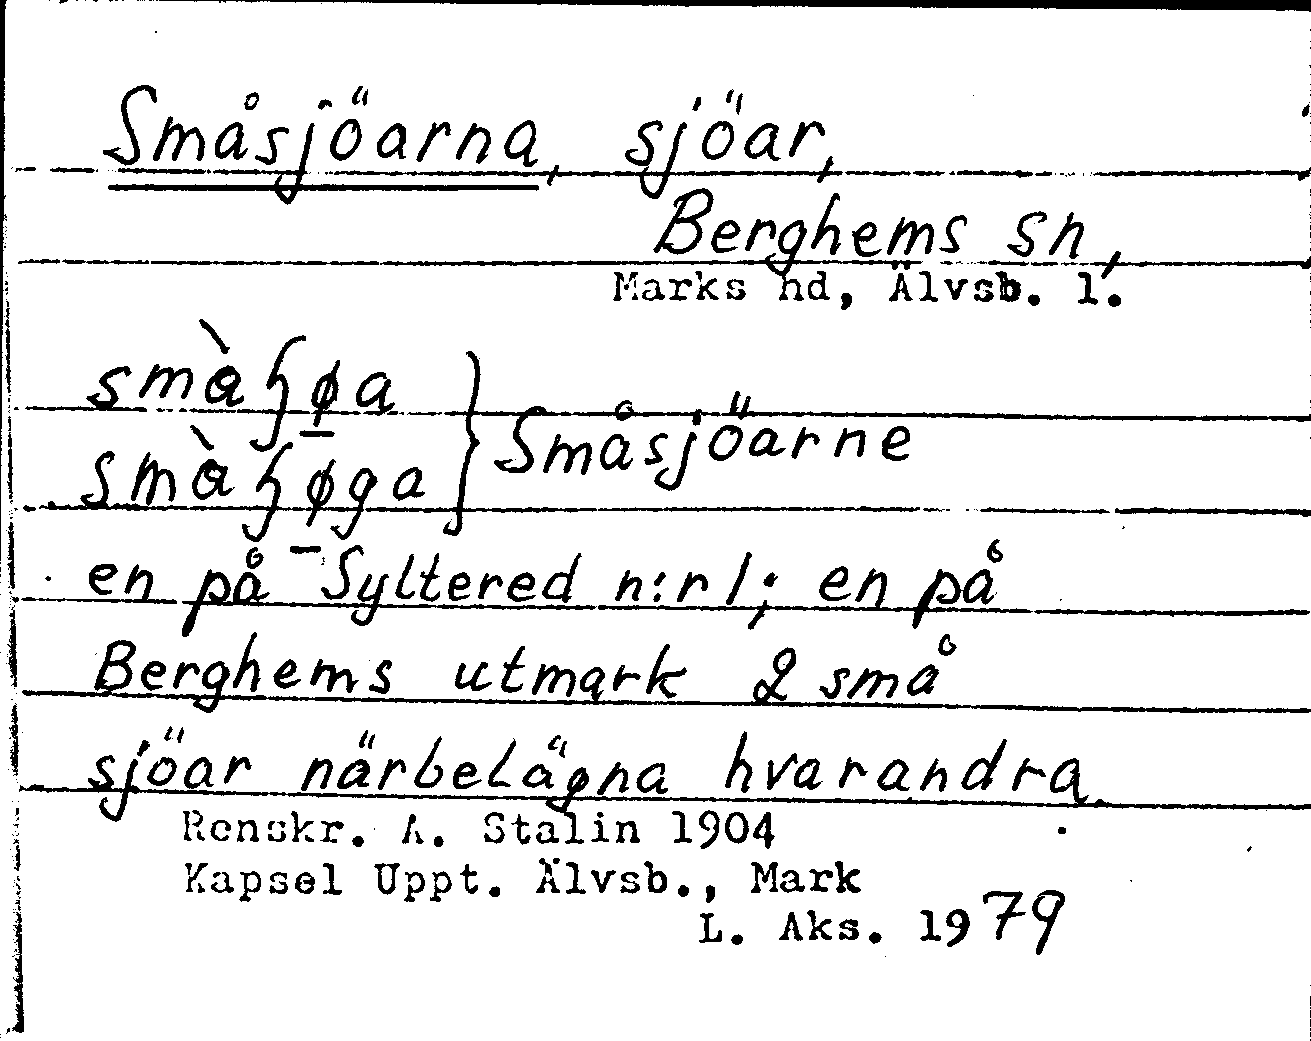 Småsjöarna, sjöar,
Berghems sn,
Marks hd, Älvsb. l.
smàɧø̱a
smàɧø̱ga } Småsjöarne
en på Syltered n:r 1; en på
Berghems utmark 2 små
sjöar närbelägna hvarandra.
Renskr. A. Stalin 1904
Kapsel Uppt. Älvsb., Mark
L. Aks. 1979